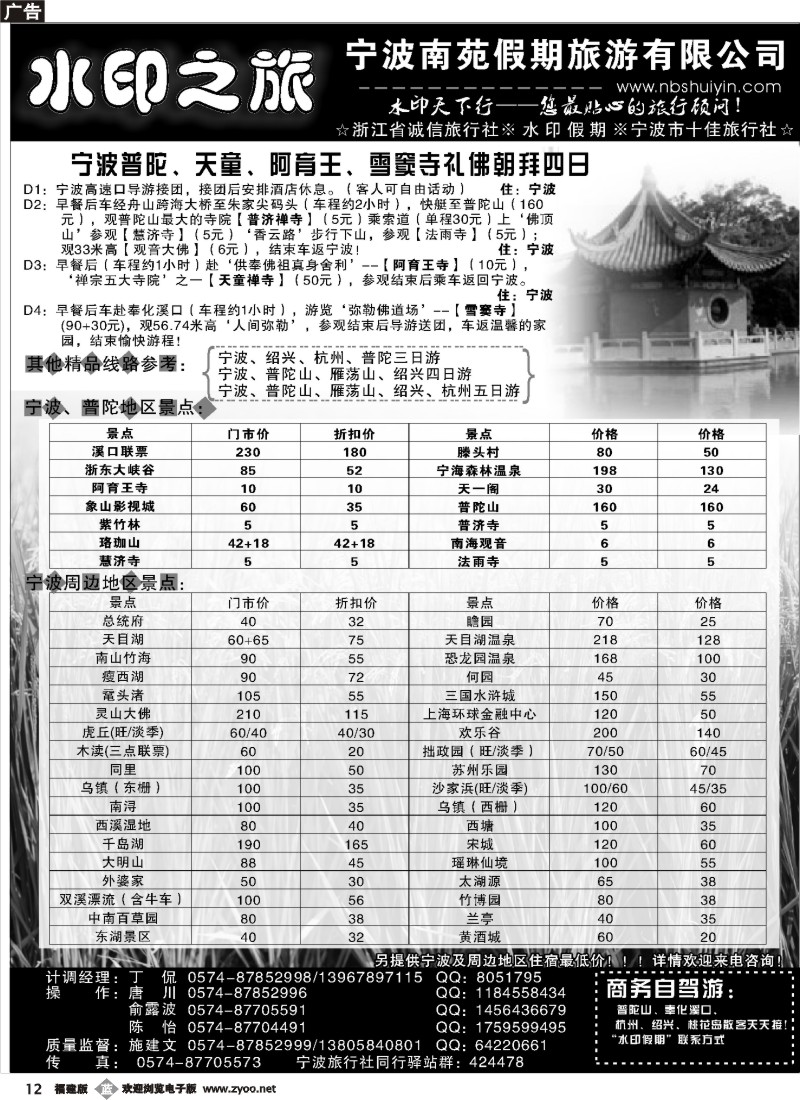 广告
水印之旅
宁波南苑假期旅游有限公司
www.nbshuiyin.com
水印天下行——您最贴心的旅行顾问!
☆浙江省诚信旅行社※水印假期※宁波市十佳旅行社☆
宁波普陀、天童、阿育王、雪窦寺礼佛朝拜四日
D1: 宁波高速口导游接团，接团后安排酒店休息。（客人可自由话动） 住: 宁波
D2: 早餐后车经舟山跨海大桥至朱家尖码头（车程约2小时），快艇至普陀山（160
元），观普陀山最大的寺院【普济禅寺】（5元）乘索道（单程30元）上‘佛顶
山’参观【慧济寺】（5元）‘香云路’步行下山，参观【法雨寺】（5元）;
观33米高【观音大佛】（6元），结束车返宁波! 住: 宁波
D3: 早餐后（车程约1小时）赴‘供奉佛祖真身舍利’--【阿育王寺】（10元），
‘禅宗五大寺院’之一【天童禅寺】（50元），参观结束后乘车返回宁波。
住: 宁波
D4: 早餐后车赴奉化溪口（车程约1小时），游览‘弥勒佛道场’--【雪窦寺】
(90+30元)，观56.74米高‘人间弥勒’，参观结束后导游送团，车返温馨的家
园，结束愉快游程!
其他精品线路参考:
宁波、绍兴、杭州、普陀三日游
宁波、普陀山、雁荡山、绍兴四日游
宁波、普陀山、雁荡山、绍兴、杭州五日游
宁波、普陀地区景点:
景点 门市价 折扣价 景点 价格 价格
溪口联票 230 180 滕头村 80 50
浙东大峡谷 85 52 宁海森林温泉 198 130
阿育王寺 10 10 天一阁 30 24
象山影视城 60 35 普陀山 160 160
紫竹林 5 5 普济寺 5 5
珞珈山 42+18 42+18 南海观音 6 6
慧济寺 5 5 法雨寺 5 5
宁波周边地区景点:
景点 门市价 折扣价 景点 价格 价格
总统府 40 32 瞻园 70 25
天目湖 60+65 75 天目湖温泉 218 128
南山竹海 90 55 恐龙园温泉 168 100
瘦西湖 90 72 何园 45 30
鼋头渚 105 55 三国水浒城 150 55
灵山大佛 210 115 上海环球金融中心 120 50
虎丘(旺/淡季) 60/40 40/30 欢乐谷 200 140
木渎(三点联票) 60 20 拙政园（旺/淡季） 70/50 60/45
同里 100 50 苏州乐园 130 70
乌镇（东栅） 100 35 沙家浜(旺/淡季) 100/60 45/35
南浔 100 35 乌镇（西栅） 120 60
西溪湿地 80 40 西塘 100 35
千岛湖 190 165 宋城 120 60
大明山 88 45 瑶琳仙境 100 55
外婆家 50 30 太湖源 65 38
双溪漂流（含牛车） 100 56 竹博园 80 38
中南百草园 80 38 兰亭 40 35
东湖景区 40 32 黄酒城 60 20
另提供宁波及周边地区住宿最低价!!! 详情欢迎来电咨询!
计调经理: 丁 侃 0574-87852998/13967897115 QQ: 8051795
操 作: 唐 川 0574-87852996 QQ: 1184558434
俞露波 0574-87705591 QQ: 1456436679
陈 怡 0574-87704491 QQ: 1759599495
质量监督: 施建文 0574-87852999/13805840801 QQ: 64220661
传 真: 0574-87705573 宁波旅行社同行驿站群: 424478
商务自驾游:
普陀山、奉化溪口、
杭州、绍兴、桃花岛散客天天接!
“水印假期”联系方式
12 福建版 蓝 欢迎浏览电子版 www.zyoo.net